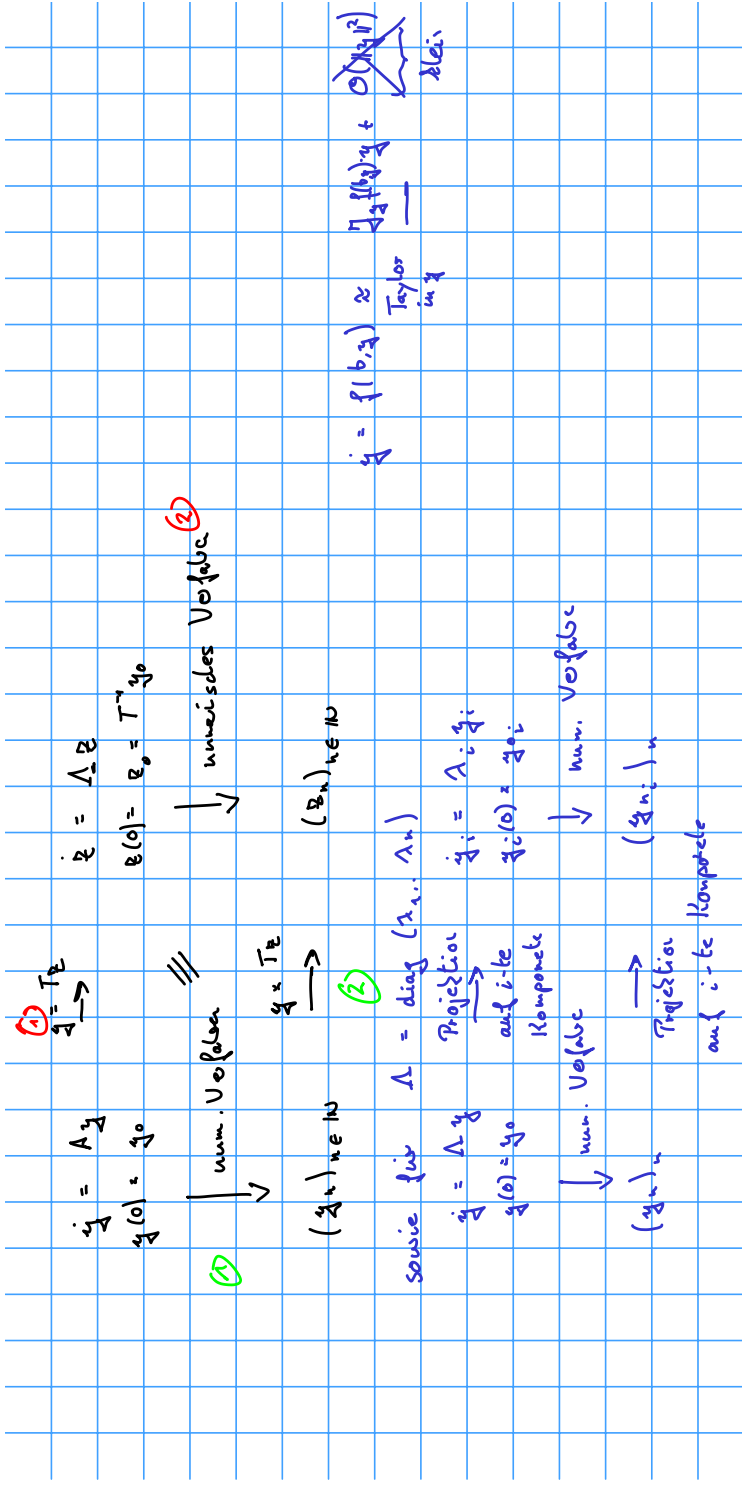 ① y = Tz →
ẏ = Ay
y(0) = y₀
ż = Λz
z(0) = z₀ = T⁻¹y₀
① ↓ num. Verfahren
///
↓ numerisches Verfahren ②
(yₙ)ₙ∈ℕ
y = Tz →
②
(zₙ)ₙ∈ℕ
sowie für Λ = diag(λ₁.. λₙ)
ẏ = Λy
y(0) = y₀
Projektion
→
auf i-te
Komponente
ẏᵢ = λᵢyᵢ
yᵢ(0) = y₀ᵢ
↓ num. Verfahren
↓ num. Verfahren
(yₙ)ₙ
→
Projektion
auf i-te Komponente
(yₙᵢ)ₙ
ẏ = f(t,y) ≈ Jyf(t,y)·y + O(‖y‖²)
Taylor
in y
klein